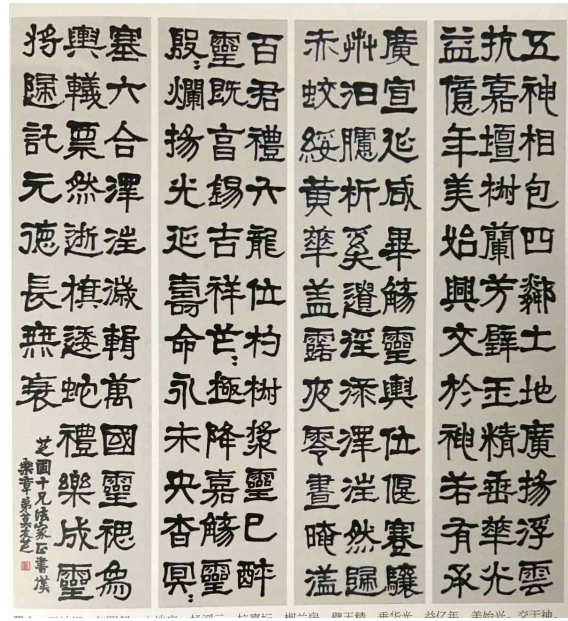 五神相包四鄰土地廣揚浮雲
抗嘉壇樹蘭芳璧玉精垂華光
益億年美始興交於神若有承
廣宣延咸畢觴靈輿位偃蹇驤
艸汩臚析奚遺淫淥澤汪然歸
赤蛟綏黃華蓋露夜零晝晻濭
百君禮六龍位杓樹漿靈已醉
靈既享錫吉祥芒:極降嘉觴靈
殷:爛揚光延壽命永未央杳冥:
塞六合澤汪濊輯萬國靈禗象
輿轙票然逝旗逶蛇禮樂成靈
將歸託元德長無衰
芝圃十兄法家正書漢
樂章弟莫友芝
垂华光 益亿年 美始兴 交于神